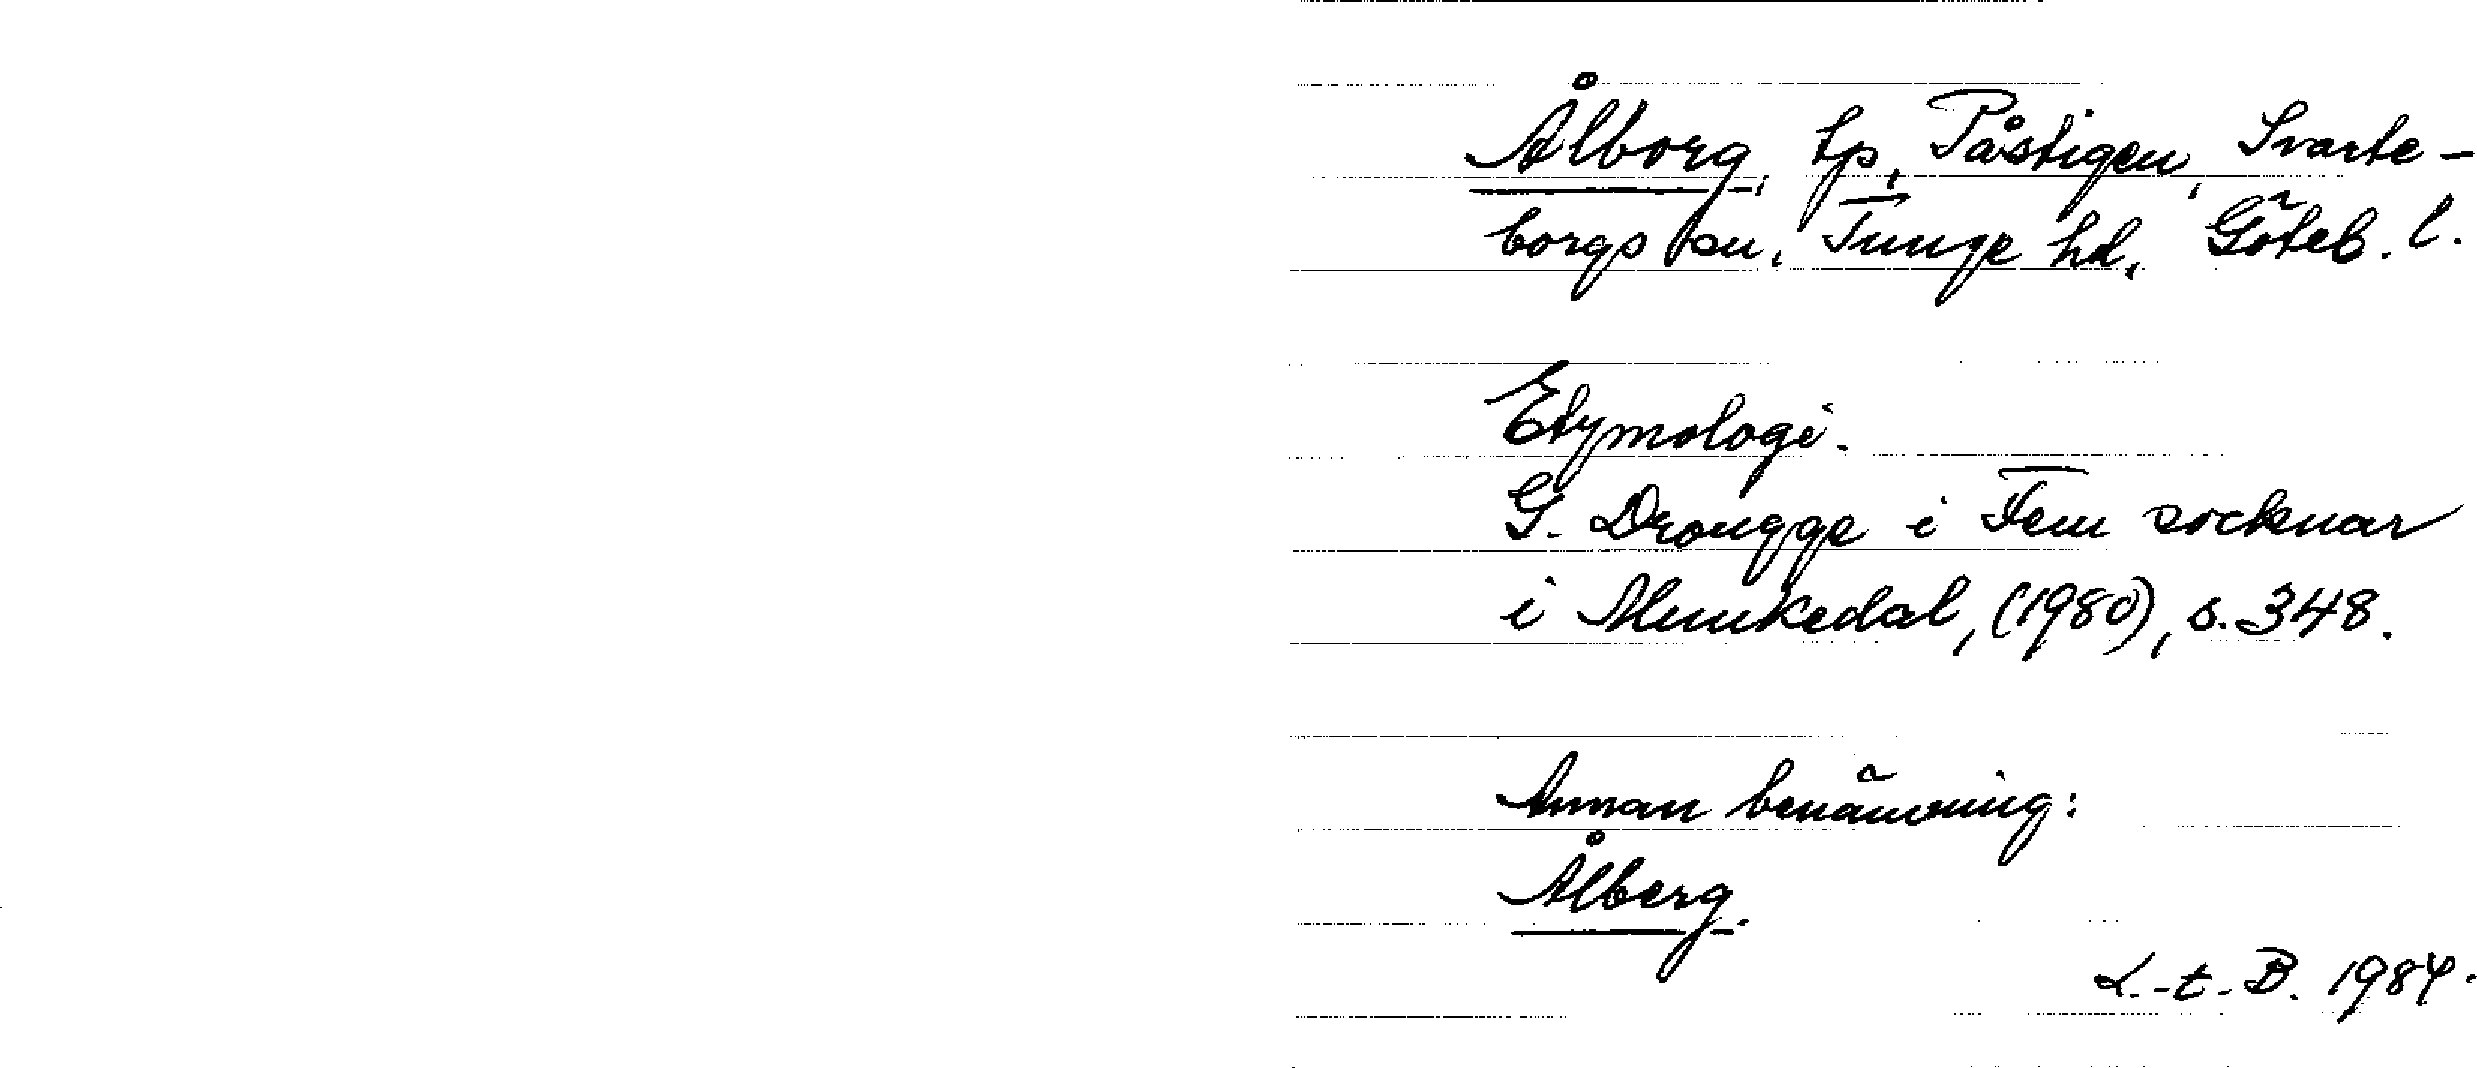 Ålborg, tp, Påstigen, Svarte-
borgs sn, Tunge hd, Göteb. l.
Etymologi.
G. Drougge i Fem socknar
i Munkedal, (1980), s. 348.
Annan benämning:
Ålberg.
L.-t. B. 1984.